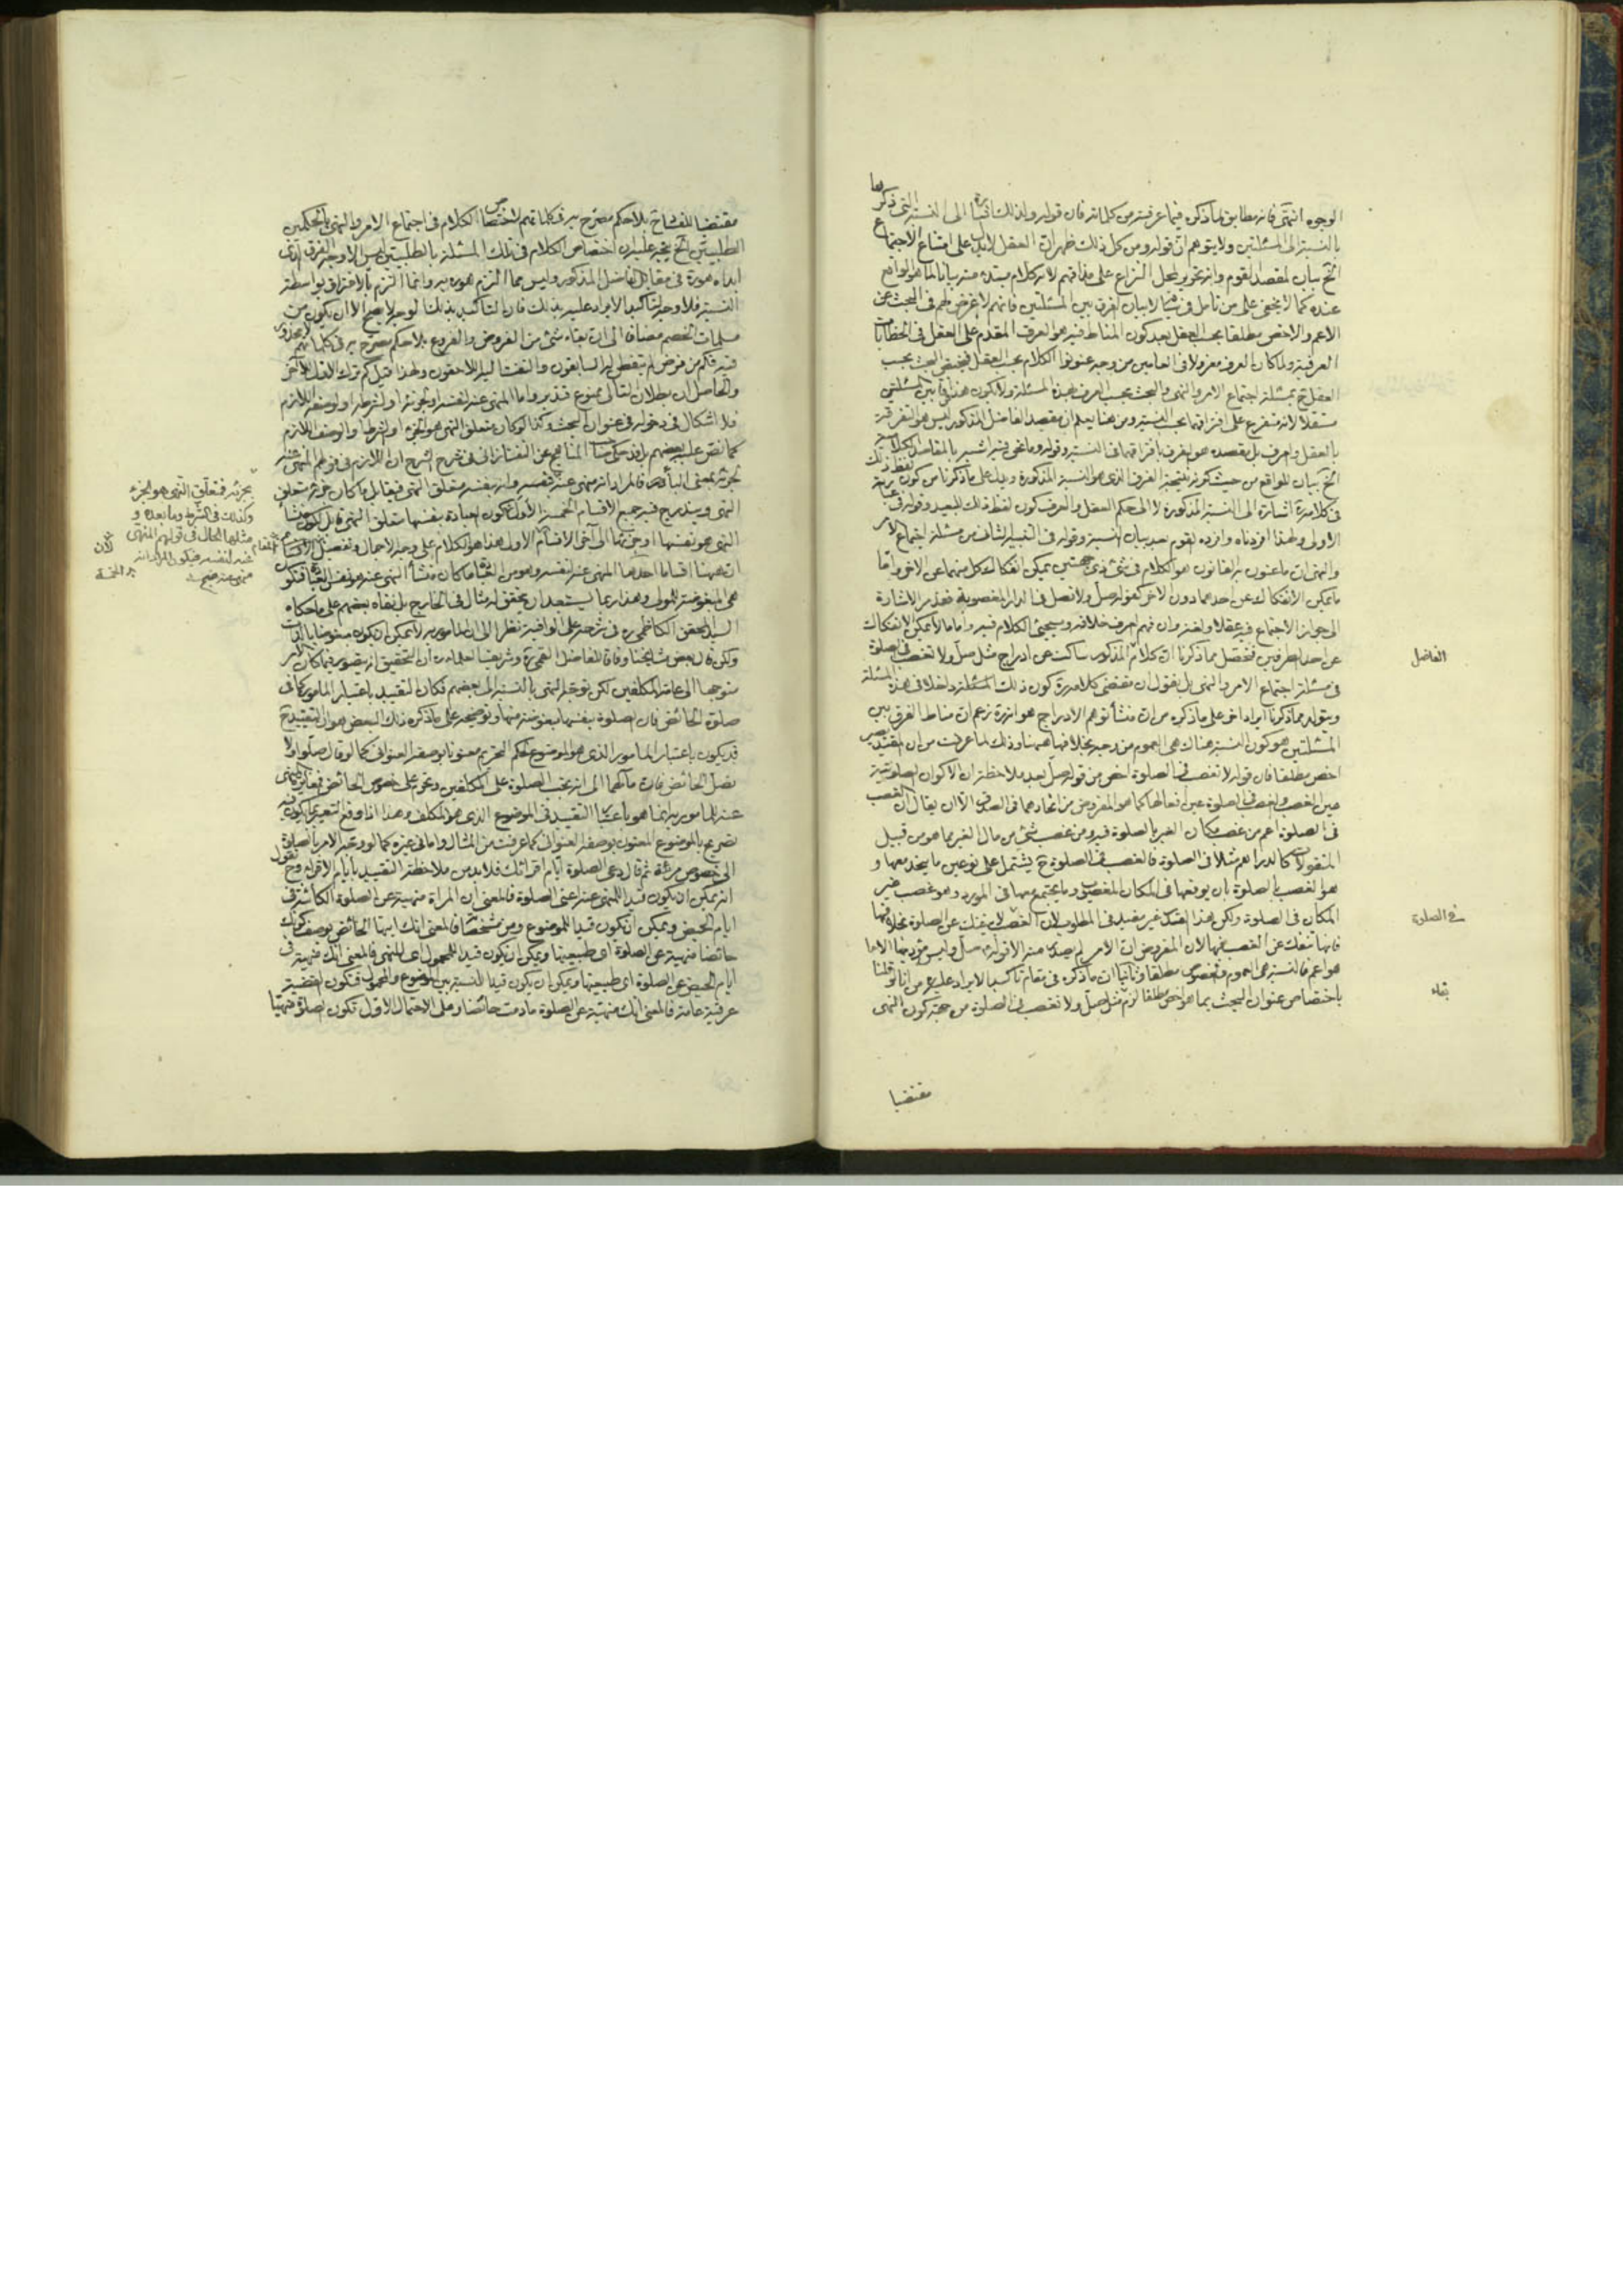 الوجوه انتهى فانه مطابق لما ذكره فيما عرفته من كلماته فان قوله ولذلك الى النسبة التي ذكرها
بالنسبة الى المسئلتين ولا يتوهم ان قوله ومن كل ذلك ظهر ان العقل لا يدل على امتناع الاجتماع
الخ بيان لمقصد القوم وانه تحرير لمحل النزاع على مذاقهم لانه كلام مبتدء منه بيانا لما هو الواقع
عنده كما لا يخفى على من تأمل في لبيان الفرق بين المسئلتين فانهم لا غرض لهم في البحث عن
الاعم والاخص مطلقا بحسب العقل بعد كون المناط فيه هو العرف المقدم على العقل في الخطابات
العرفية ولما كان العرف معزولا في العامين من وجه عنونوا الكلام بحسب العقل فيختص البحث بحسب
العقل ح بمسئلة اجتماع الامر والنهي والبحث بحسب العرف بهذه المسئلة ولا يكون هذا فرقا بين المسئلتين
مستقلا لانه متفرع على افتراقهما بحسب النسبة ومن هنا يعلم ان مقصد الفاضل المذكور ليس هو التفرقة
بالعقل والعرف بل مقصده هو الفرق بافتراقهما في النسبة وقوله وما نحن فيه اشبه بالمقاصد الكلامية
الخ بيان للواقع من حيث كونه نتيجة الفرق الذي هو النسبة المذكورة ويدل على ما ذكرنا من كون لفظ ذلك
في كلامه ره اشارة الى النسبة المذكورة لا الى حكم العقل والعرف كون لفظ ذلك للبعيد وقوله في
الاولى ولهذا افردناه وافرده القوم بعد بيان النسبة وقوله في التنبيه الثالث من مسئلة اجتماع الامر
والنهي ان ما عنون به القانون هو الكلام في شيء ذي جهتين يمكن انفكاك كل منهما عن الاخر واما
ما يمكن الانفكاك عن احدهما دون الاخر كقوله صل ولا تصل في الدار المغصوبة فقد مر الاشارة
الى جواز الاجتماع فيه عقلا ولغة وان فهم العرف خلافه وسيجيء الكلام فيه واما ما لا يمكن الانفكاك
عن احد الطرفين فتحصل مما ذكرنا ان كلام المذكور ساكت عن ادراج مثل صل ولا تغصب في الصلوة
في مسئلة اجتماع الامر والنهي بل نقول ان مقتضى كلامه ره كون ذلك المسئلة داخلا في هذه المسئلة
ويتولد مما ذكرنا ايراد اخر على ما ذكره من ان منشأ توهم الادراج هو انه ره زعم ان مناط الفرق بين
المسئلتين هو كون النسبة هناك هي العموم من وجه بخلافها هيهنا وذلك لما عرفت من ان
اخص مطلقا فان قوله لا تغصب في الصلوة اخص من قوله صل بعد ملاحظة ان الاكوان الصلوتية
عين الغصب والغصب في الصلوة عين افعالها كما هو المفروض من اتحادهما في المصداق الا ان يقال ان الغصب
في الصلوة اعم من غصب مكان الغير بالصلوة فيه ومن غصب شيء من مال الغير مما هو من قبيل
المنقولات كالدراهم مثلا في الصلوة فالغصب في الصلوة ح يشتمل على نوعين ما يتحد معها و
هو الغصب بالصلوة بان يوقعها في المكان المغصوب وما يجتمع معها في المورد وهو غصب غير
المكان في الصلوة ولكن هذا غير مفيد في المطلوب لان الغصب لا ينفك عن الصلوة بخلافها
فانها تنفك عن الغصب فيها لان المفروض ان الامر لم يصدر منه الا قوله صل وليس مؤديها الا ما
هو اعم فالنسبة هي العموم والخصوص مطلقا وثانيا ان ما ذكره في مقام تأكيد الايراد عليه من انا لو قلنا
باختصاص عنوان البحث بما هو اخص مطلقا لزم مثل صل ولا تغصب في الصلوة من جهة كون النهي
الفاضل
في الصلوة
بقاء
مقتضيا
مقتضيا للفساد بلا حكم مصرح به في كلماتهم لاختصاص الكلام في اجتماع الامر والنهي بالحكمين
الطلبيين الخ يتجه عليه ان اختصاص الكلام في تلك المسئلة بالطلبيين ليس الا وجه الفرق الذي
ابداه هو ره في مقابل الفاضل المذكور وليس مما التزم هو ره به وانما التزم بالافتراق بواسطة
النسبة فلا وجه لتأكيد الايراد عليه بذلك فان التأكيد بذلك لوجه لا يصح الا ان يكون من
مسلمات الخصم مضافا الى ان بقاء شيء من الفروض والفروع بلا حكم مصرح به في كلماتهم لا محذور
فيه فكم من فرض لم يتفطن له السابقون والتفت اليه اللاحقون ولهذا قيل كم ترك الاول للاخر
والحاصل ان بطلان التالي ممنوع فتدبر واما المنهي عنه لنفسه او لجزئه او لشرطه او لوصفه اللازم
فلا اشكال في دخوله في عنوان البحث وكذا لو كان متعلق النهي هو الجزء او الشرط او الوصف اللازم
كما نص عليه بعضهم عن التفتازاني في شرح الشرح ان اللازم في قولهم المنهي عنه
لجزئه بمعنى الباء فالمراد انه منهي عنه بنفسه وانه بنفسه متعلق النهي فيقابل ما كان جزئه متعلق
النهي ويندرج فيه جميع الاقسام الخمسة الاول لكون العبادة بنفسها متعلق النهي
النهي هو نفسها او جزئها الى آخر الاقسام الاول هذا هو الكلام على وجه الاجمال وتفصيل
ان هيهنا اقساما احدها المنهي عنه لنفسه وهو من ما كان منشأ النهي عنه هو نفس العبادة فتكون
هي المبغوضة للمولى وهذا ربما يستبعد ان يتحقق له مثال في الخارج بل نفاه بعضهم على ما حكاه
السيد المحقق الكاظمي ره في شرحه على الوافية نظرا الى ان المأمور به لا يمكن ان يكون مبغوضا بالذات
ولكن قال بعض مشايخنا وفاقا للفاضل القمي ره وشريف العلماء ره ان التحقيق انه يتصور فيما كان الامر
متوجها الى عامة المكلفين لكن توجه النهي بالنسبة الى بعضهم فكان التقييد باعتبار المأمور كما في
صلوة الحائض فان الصلوة بنفسها مبغوضة منها وتوضيحه على ما ذكره ذلك البعض هو ان التقييد ح
قد يكون باعتبار المأمور الذي هو الموضوع لحكم التحريم معنونا بوصفه العنواني كما لو قال صلوا ولا
تصل الحائض فان مآلهما الى انه يجب الصلوة على المكلفين وتحرم على خصوص الحائض فمغايرة المنهي
عنه للمأمور به انما هو باعتبار التقييد في الموضوع الذي هو المكلف وهذا اذا وقع التعبير بما يكون فيه
تصريح بالموضوع المعنون بوصفه العنواني كما عرفت من المثال واما في غيره كما لو توجه الامر بالصلوة
الى خصوص مرئة ثم قال دعي الصلوة ايام اقرائك فلا بد من ملاحظة التقييد بايام الاقراء وح نقول
انه يمكن ان يكون قيدا للمنهي عنه اعني الصلوة فالمعنى ان المراة منهية عن الصلوة الكائنة في
ايام الحيض ويمكن ان يكون قيدا للموضوع ومن مشخصاته فالمعنى انك ايتها الحائض بوصف كونك
حائضا منهية عن الصلوة اى طبيعتها ويمكن ان يكون قيدا للمحمول اى للنهي فالمعنى انك منهية في
ايام الحيض عن الصلوة اى طبيعتها ويمكن ان يكون قيدا للنسبة بين الموضوع والمحمول فتكون القضية
عرفية عامة فالمعنى انك منهية عن الصلوة ما دمت حائضا وعلى الاحتمال الاول تكون الصلوة منهيا
بجزئه فتعلق النهي هو الجزء
وكذلك في الشرط وما بعده و
مثلها الحال في قولهم المنهي
عنه لنفسه فيكون المراد انه
منهي عنه